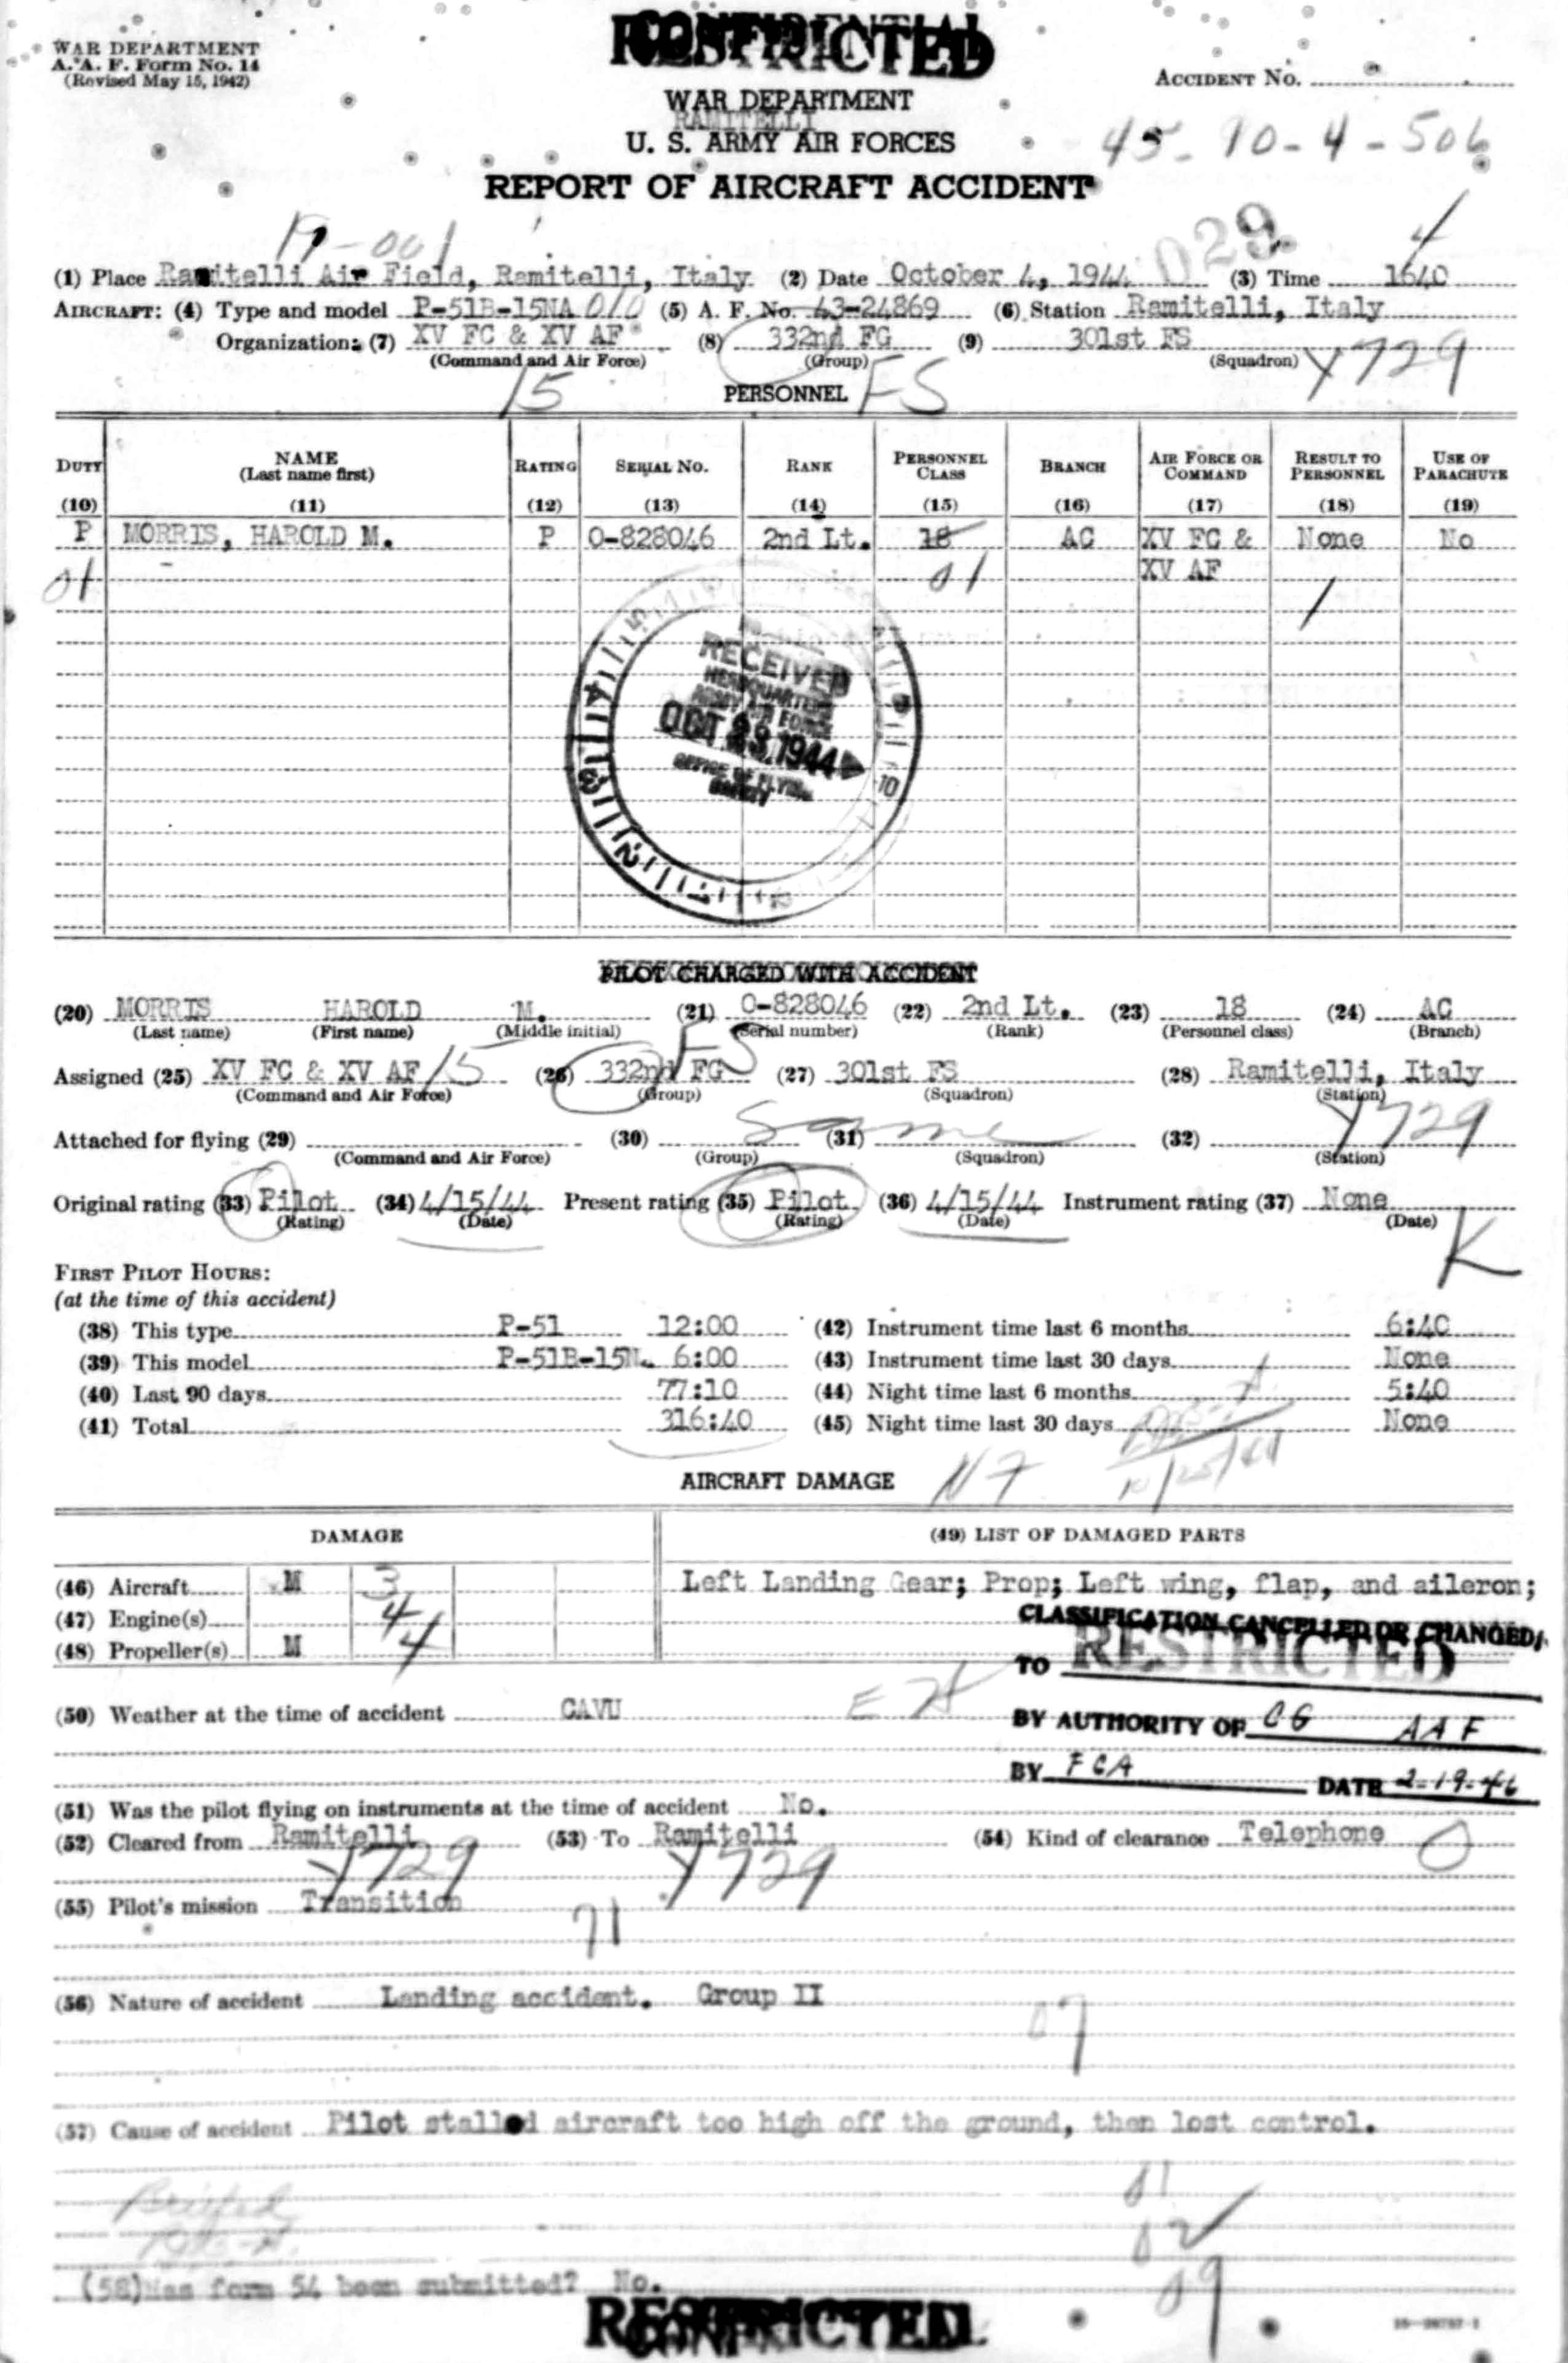 WAR DEPARTMENT
A. A. F. Form No. 14
(Revised May 15, 1942)
RESTRICTED
WAR DEPARTMENT
RAMITELLI
U. S. ARMY AIR FORCES
REPORT OF AIRCRAFT ACCIDENT
ACCIDENT No.
45-10-4-506
17-001
029
4
(1) Place Ramitelli Air Field, Ramitelli, Italy (2) Date October 4, 1944 (3) Time 1640
AIRCRAFT: (4) Type and model P-51B-15NA 010 (5) A. F. No. 43-24869 (6) Station Ramitelli, Italy
Organization: (7) XV FC & XV AF (8) 332nd FG (9) 301st FS
(Command and Air Force) (Group) (Squadron) Y729
15 PERSONNEL FS
DUTY NAME (Last name first) RATING SERIAL NO. RANK PERSONNEL CLASS BRANCH AIR FORCE OR COMMAND RESULT TO PERSONNEL USE OF PARACHUTE
(10) (11) (12) (13) (14) (15) (16) (17) (18) (19)
P MORRIS, HAROLD M. P O-828046 2nd Lt. 18 AC XV FC & None No
01 01 XV AF
1
RECEIVED
HEADQUARTERS
ARMY AIR FORCE
OCT 1944
OFFICE OF FLYING
SAFETY
PILOT CHARGED WITH ACCIDENT
(20) MORRIS HAROLD M. (21) O-828046 (22) 2nd Lt. (23) 18 (24) AC
(Last name) (First name) (Middle initial) (Serial number) (Rank) (Personnel class) (Branch)
FS
Assigned (25) XV FC & XV AF 15 (26) 332nd FG (27) 301st FS (28) Ramitelli, Italy
(Command and Air Force) (Group) (Squadron) (Station)
Attached for flying (29) (30) Same (31) (32) Y729
(Command and Air Force) (Group) (Squadron) (Station)
Original rating (33) Pilot (34) 4/15/44 Present rating (35) Pilot (36) 4/15/44 Instrument rating (37) None
(Rating) (Date) (Rating) (Date) (Date)
K
FIRST PILOT HOURS:
(at the time of this accident)
(38) This type P-51 12:00 (42) Instrument time last 6 months 6:40
(39) This model P-51B-15N. 6:00 (43) Instrument time last 30 days None
(40) Last 90 days 77:10 (44) Night time last 6 months 5:40
(41) Total 316:40 (45) Night time last 30 days None
AIRCRAFT DAMAGE N7 10/25/44
DAMAGE (49) LIST OF DAMAGED PARTS
(46) Aircraft M 3 Left Landing Gear; Prop; Left wing, flap, and aileron;
(47) Engine(s) 4
(48) Propeller(s) M 4
CLASSIFICATION CANCELLED OR CHANGED
TO RESTRICTED
(50) Weather at the time of accident CAVU
BY AUTHORITY OF CG AAF
BY FCA DATE 2-19-46
(51) Was the pilot flying on instruments at the time of accident No.
(52) Cleared from Ramitelli (53) To Ramitelli (54) Kind of clearance Telephone O
Y729 Y729
(55) Pilot's mission Transition
71
(56) Nature of accident Landing accident. Group II
07
(57) Cause of accident Pilot stalled aircraft too high off the ground, then lost control.
01
02
09
(58) Has form 54 been submitted? No.
RESTRICTED